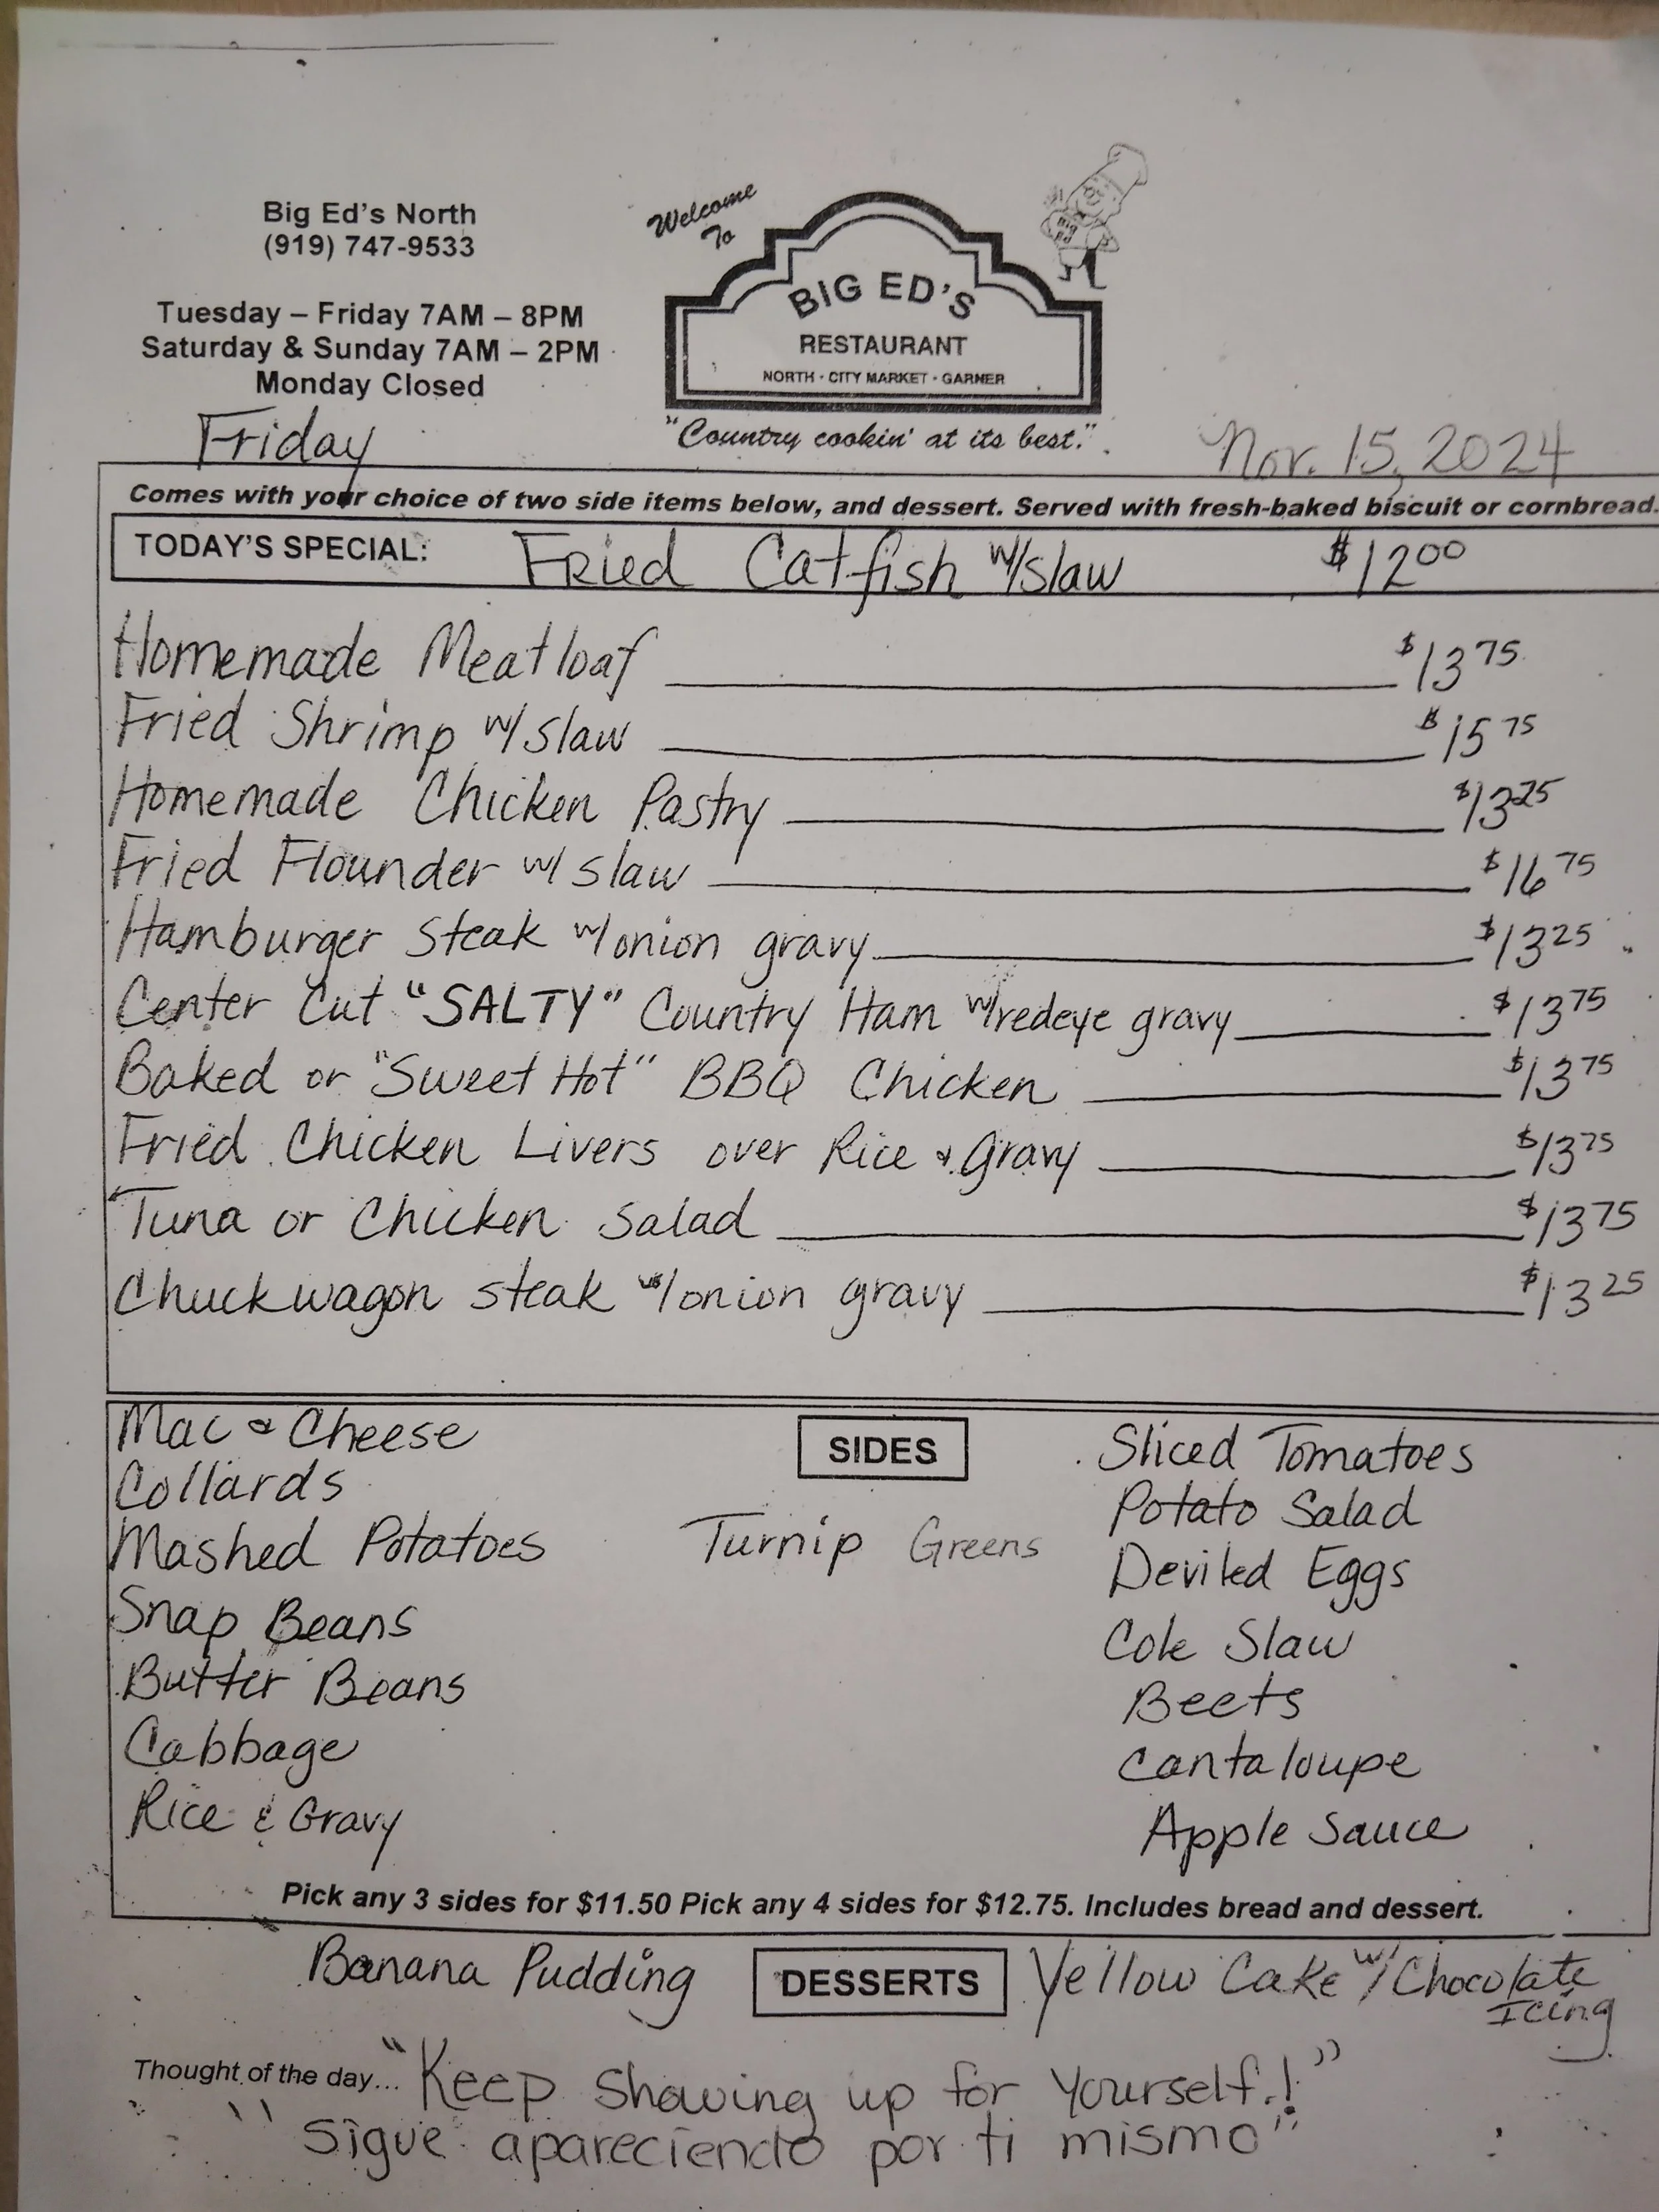 Big Ed's North
(919) 747-9533
Tuesday – Friday 7AM – 8PM
Saturday & Sunday 7AM – 2PM
Monday Closed
Welcome
To
BIG ED'S
RESTAURANT
NORTH · CITY MARKET · GARNER
"Country cookin' at its best."
Friday
Nov. 15, 2024
Comes with your choice of two side items below, and dessert. Served with fresh-baked biscuit or cornbread.
TODAY'S SPECIAL: Fried Catfish w/slaw $12.00
Homemade Meatloaf $13.75
Fried Shrimp w/ slaw $15.75
Homemade Chicken Pastry $13.25
Fried Flounder w/ slaw $16.75
Hamburger Steak w/onion gravy $13.25
Center Cut "SALTY" Country Ham w/redeye gravy $13.75
Baked or "Sweet Hot" BBQ Chicken $13.75
Fried Chicken Livers over Rice & Gravy $13.75
Tuna or Chicken Salad $13.75
Chuckwagon steak w/onion gravy $13.25
SIDES
Mac & Cheese
Collards
Mashed Potatoes
Snap Beans
Butter Beans
Cabbage
Rice & Gravy
Turnip Greens
Sliced Tomatoes
Potato Salad
Deviled Eggs
Cole Slaw
Beets
Cantaloupe
Apple Sauce
Pick any 3 sides for $11.50 Pick any 4 sides for $12.75. Includes bread and dessert.
Banana Pudding DESSERTS Yellow Cake w/ Chocolate
Icing
Thought of the day... "Keep Showing up for Yourself.!"
"Sigue apareciendo por ti mismo"